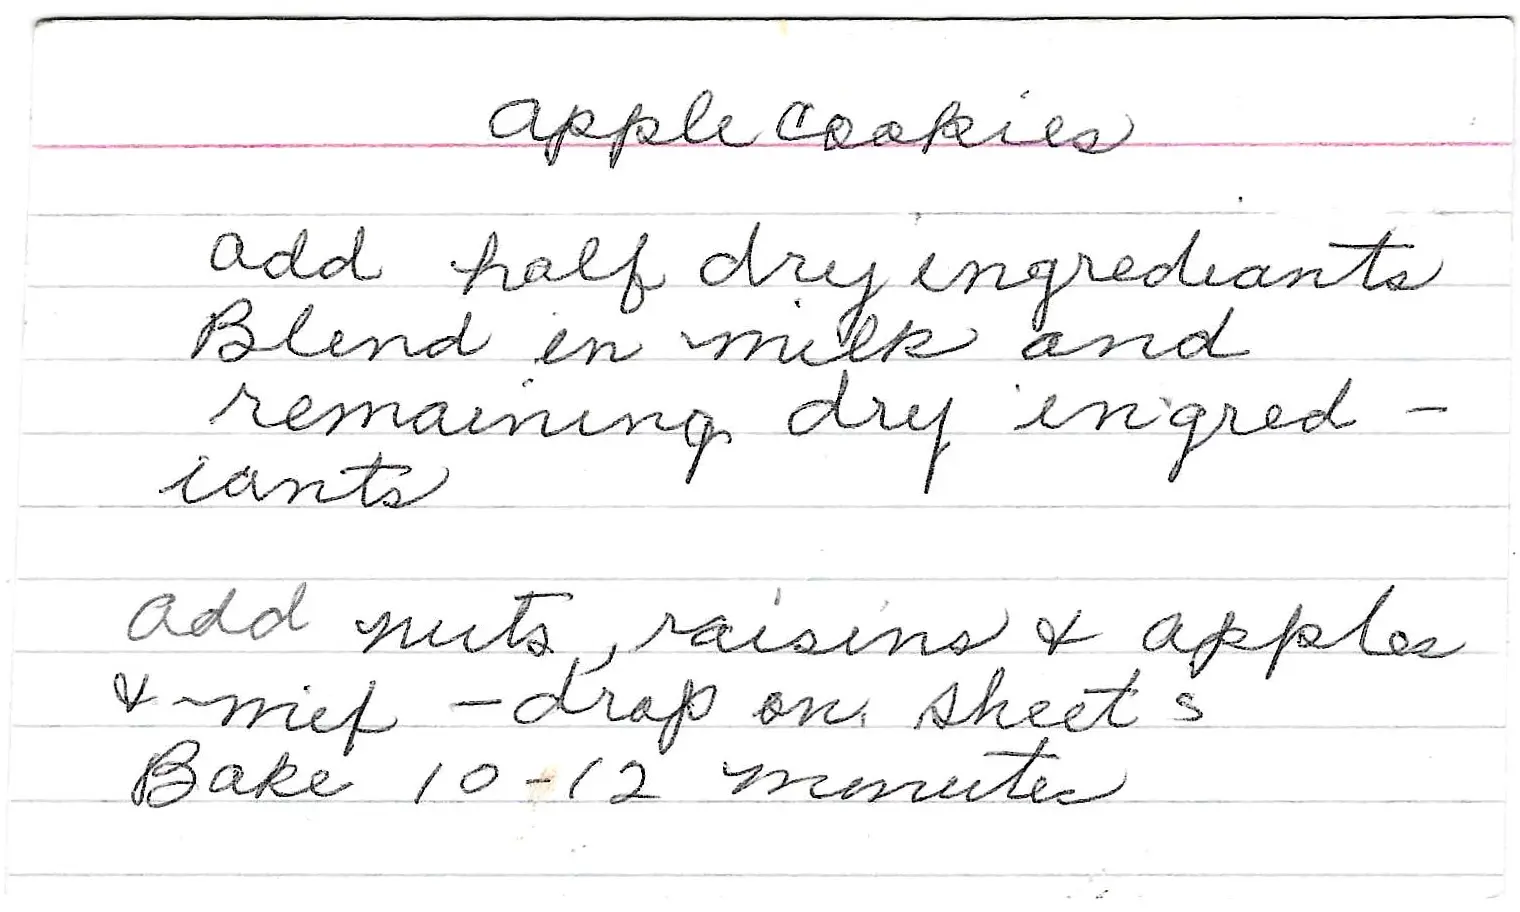 apple cookies
add half dry ingrediants
Blend in milk and
remaining dry ingred -
iants
add nuts, raisins & apples
& mix - drop on sheets
Bake 10-12 minutes